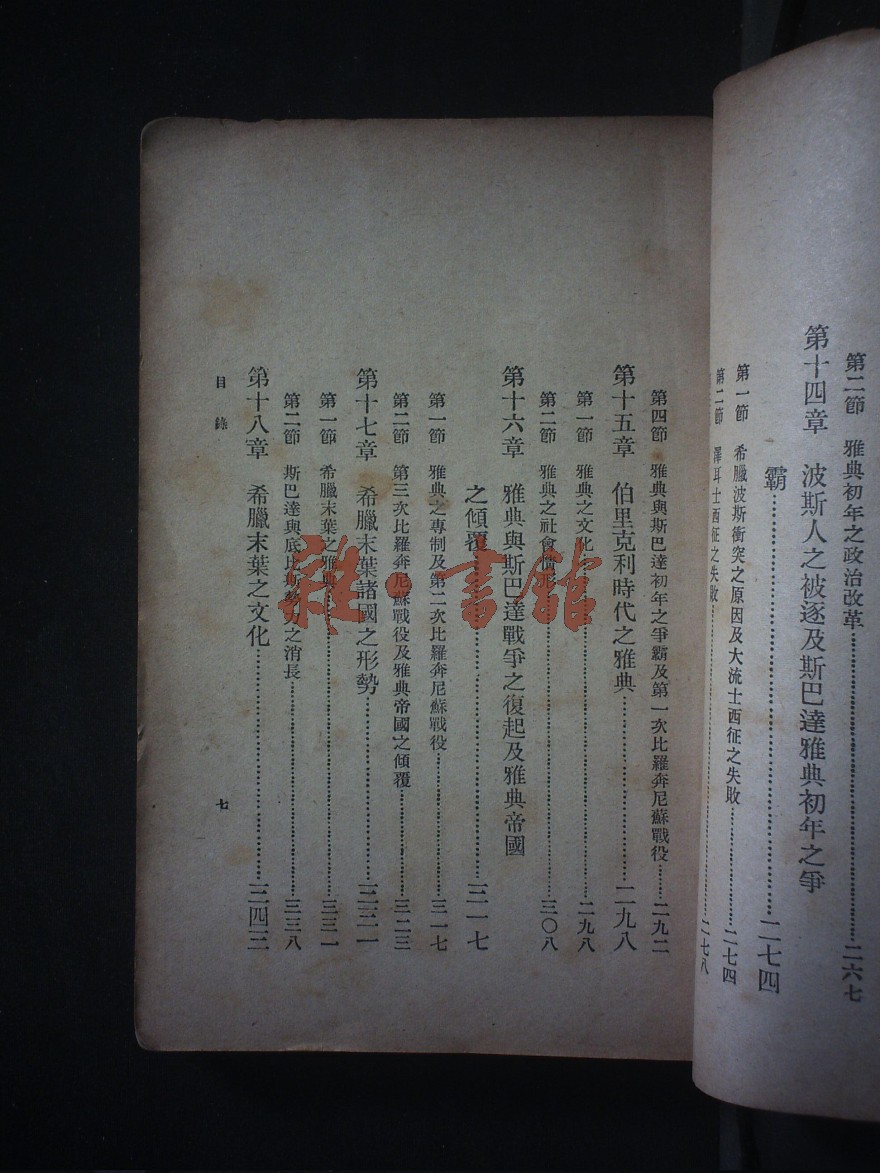 第二節 雅典初年之政治改革…………二六七
第十四章 波斯人之被逐及斯巴達雅典初年之爭
霸…………二七四
第一節 希臘波斯衝突之原因及大流士西征之失敗…………二七四
第二節 澤耳士西征之失敗…………二七八
第四節 雅典與斯巴達初年之爭霸及第一次比羅奔尼蘇戰役…………二九二
第十五章 伯里克利時代之雅典…………二九八
第一節 雅典之文化…………二九八
第二節 雅典之社會情形…………三〇八
第十六章 雅典與斯巴達戰爭之復起及雅典帝國
之傾覆…………三一七
第一節 雅典之專制及第二次比羅奔尼蘇戰役…………三一七
第二節 第三次比羅奔尼蘇戰役及雅典帝國之傾覆…………三二三
第十七章 希臘末葉諸國之形勢…………三三一
第一節 希臘末葉之雅典…………三三一
第二節 斯巴達與底比斯勢力之消長…………三三八
第十八章 希臘末葉之文化…………三四三
目錄
七
雜·書館